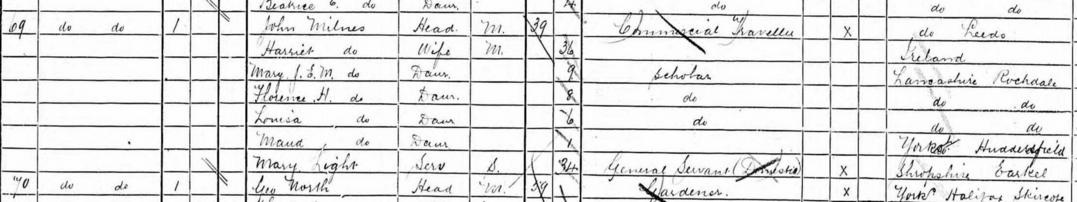 Beatrice E. do Daur. 4 do do do
69 do do 1 John Milnes Head M. 39 Commercial Traveller X do Leeds
Harriet do Wife M. 36 Ireland
Mary J. E. M. do Daur. 9 Scholar Lancashire Rochdale
Florence H. do Daur. 8 do do do
Louisa do Daur 6 do do do
Maud do Daur 1 Yorks Huddersfield
Mary Light Serv S. 34 General Servant (Domestic) X Shropshire
70 do do 1 Geo North Head M. 39 Gardener. X Yorks Halifax Skircote